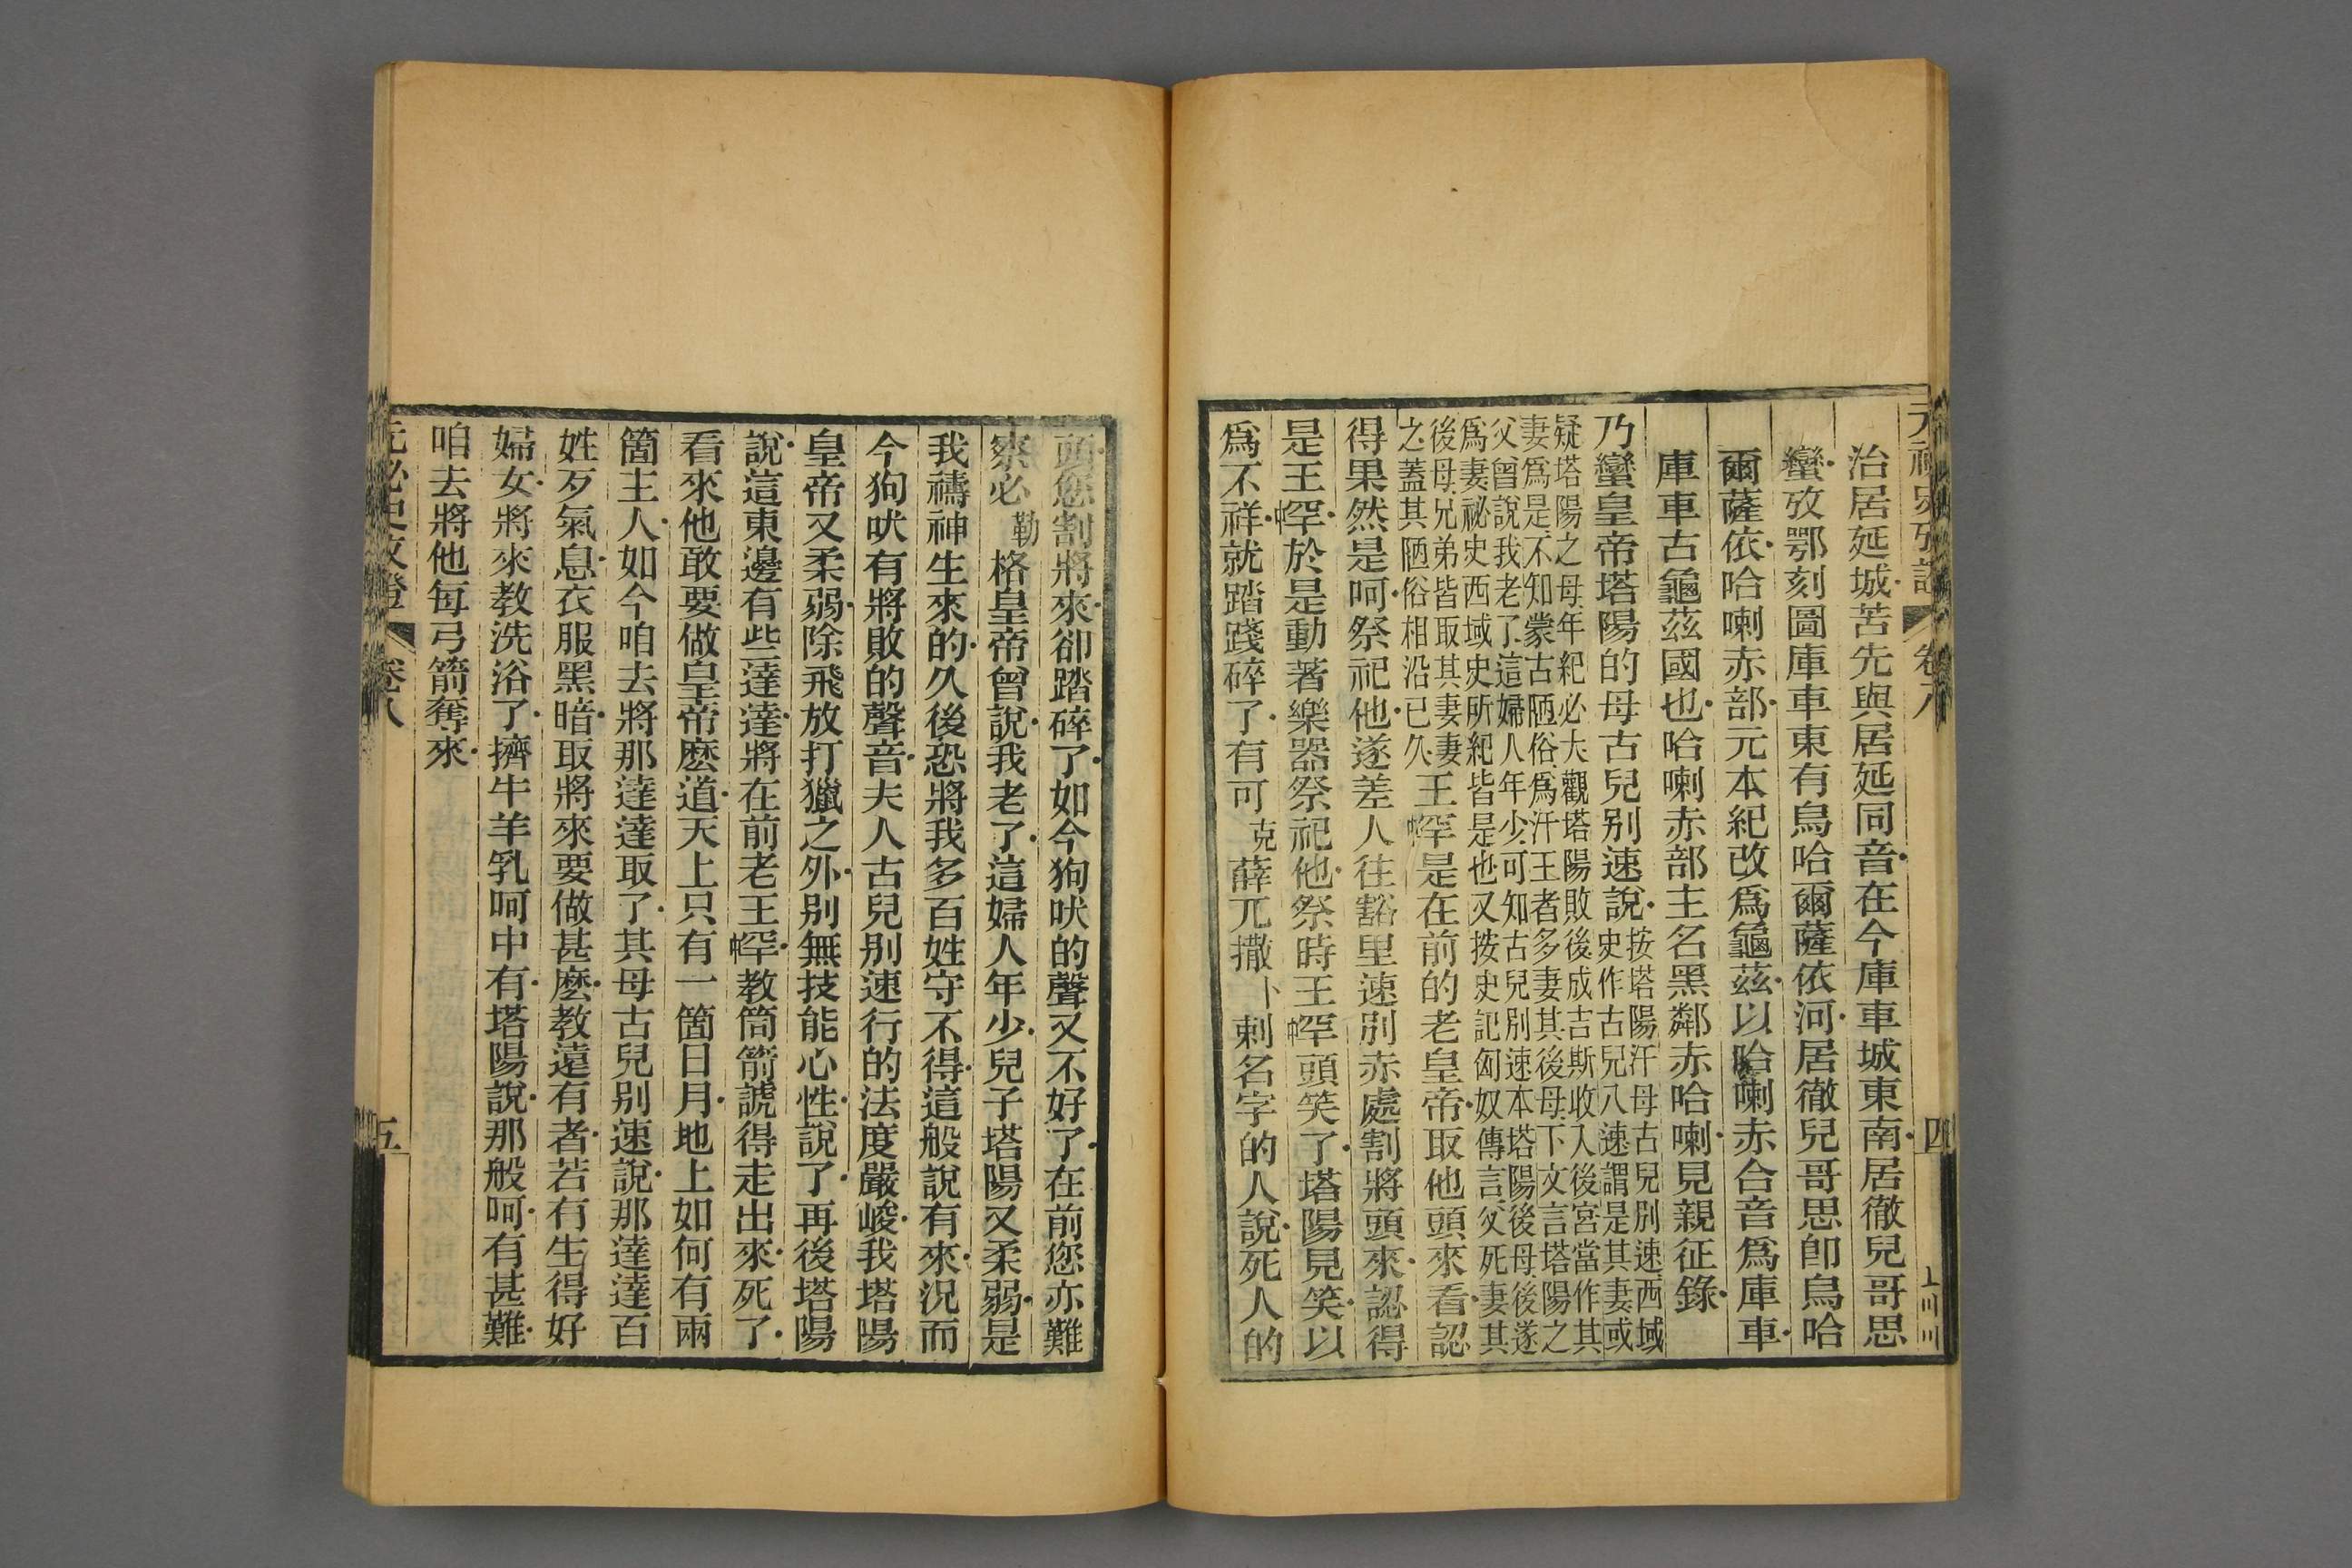 元祕史攷證　卷八　四
治居延城苦先與居延同音在今庫車城東南居徹兒哥思
蠻攷鄂刻圖庫車東有烏哈爾薩依河居徹兒哥思卽烏哈
爾薩依哈喇赤部元本紀改爲龜茲以哈喇赤合音爲庫車
庫車古龜茲國也哈喇赤部主名黑鄰赤哈喇見親征錄
乃蠻皇帝塔陽的母古兒别速說
按塔陽汗母古兒别速西域
史作古兒八速謂是其妻或
疑塔陽之母年紀必大觀塔陽敗後成吉斯收入後宮當作其
妻爲是不知蒙古陋俗爲汗王者多妻其後母下文言塔陽之
父曾說我老了這婦人年少可知古兒别速本塔陽後母後遂
爲妻祕史西域史所紀皆是也又按史記匈奴傳言父死妻其
後母兄弟皆取其妻妻
之蓋其陋俗相沿已久
王中罕是在前的老皇帝取他頭來看認
得果然是呵祭祀他遂差人往豁里速别赤處割將頭來認得
是王中罕於是動著樂器祭祀他祭時王中罕頭笑了塔陽見笑以
爲不祥就踏踐碎了有可克薛兀撒卜剌名字的人說死人的
頭您割將來卻踏碎了如今狗吠的聲又不好了在前您亦難
察必勒格皇帝曾說我老了這婦人年少兒子塔陽又柔弱是
我禱神生來的久後恐將我多百姓守不得這般說有來況而
今狗吠有將敗的聲音夫人古兒别速行的法度嚴峻我塔陽
皇帝又柔弱除飛放打獵之外别無技能心性說了再後塔陽
說這東邊有些達達將在前老王中罕教筒箭諕得走出來死了
看來他敢要做皇帝麽道天上只有一箇日月地上如何有兩
箇主人如今咱去將那達達取了其母古兒别速說那達達百
姓歹氣息衣服黑暗取將來要做甚麽教遠有者若有生得好
婦女將來教洗浴了擠牛羊乳呵中有塔陽說那般呵有甚難
咱去將他每弓箭奪來
元祕史攷證　卷八　五